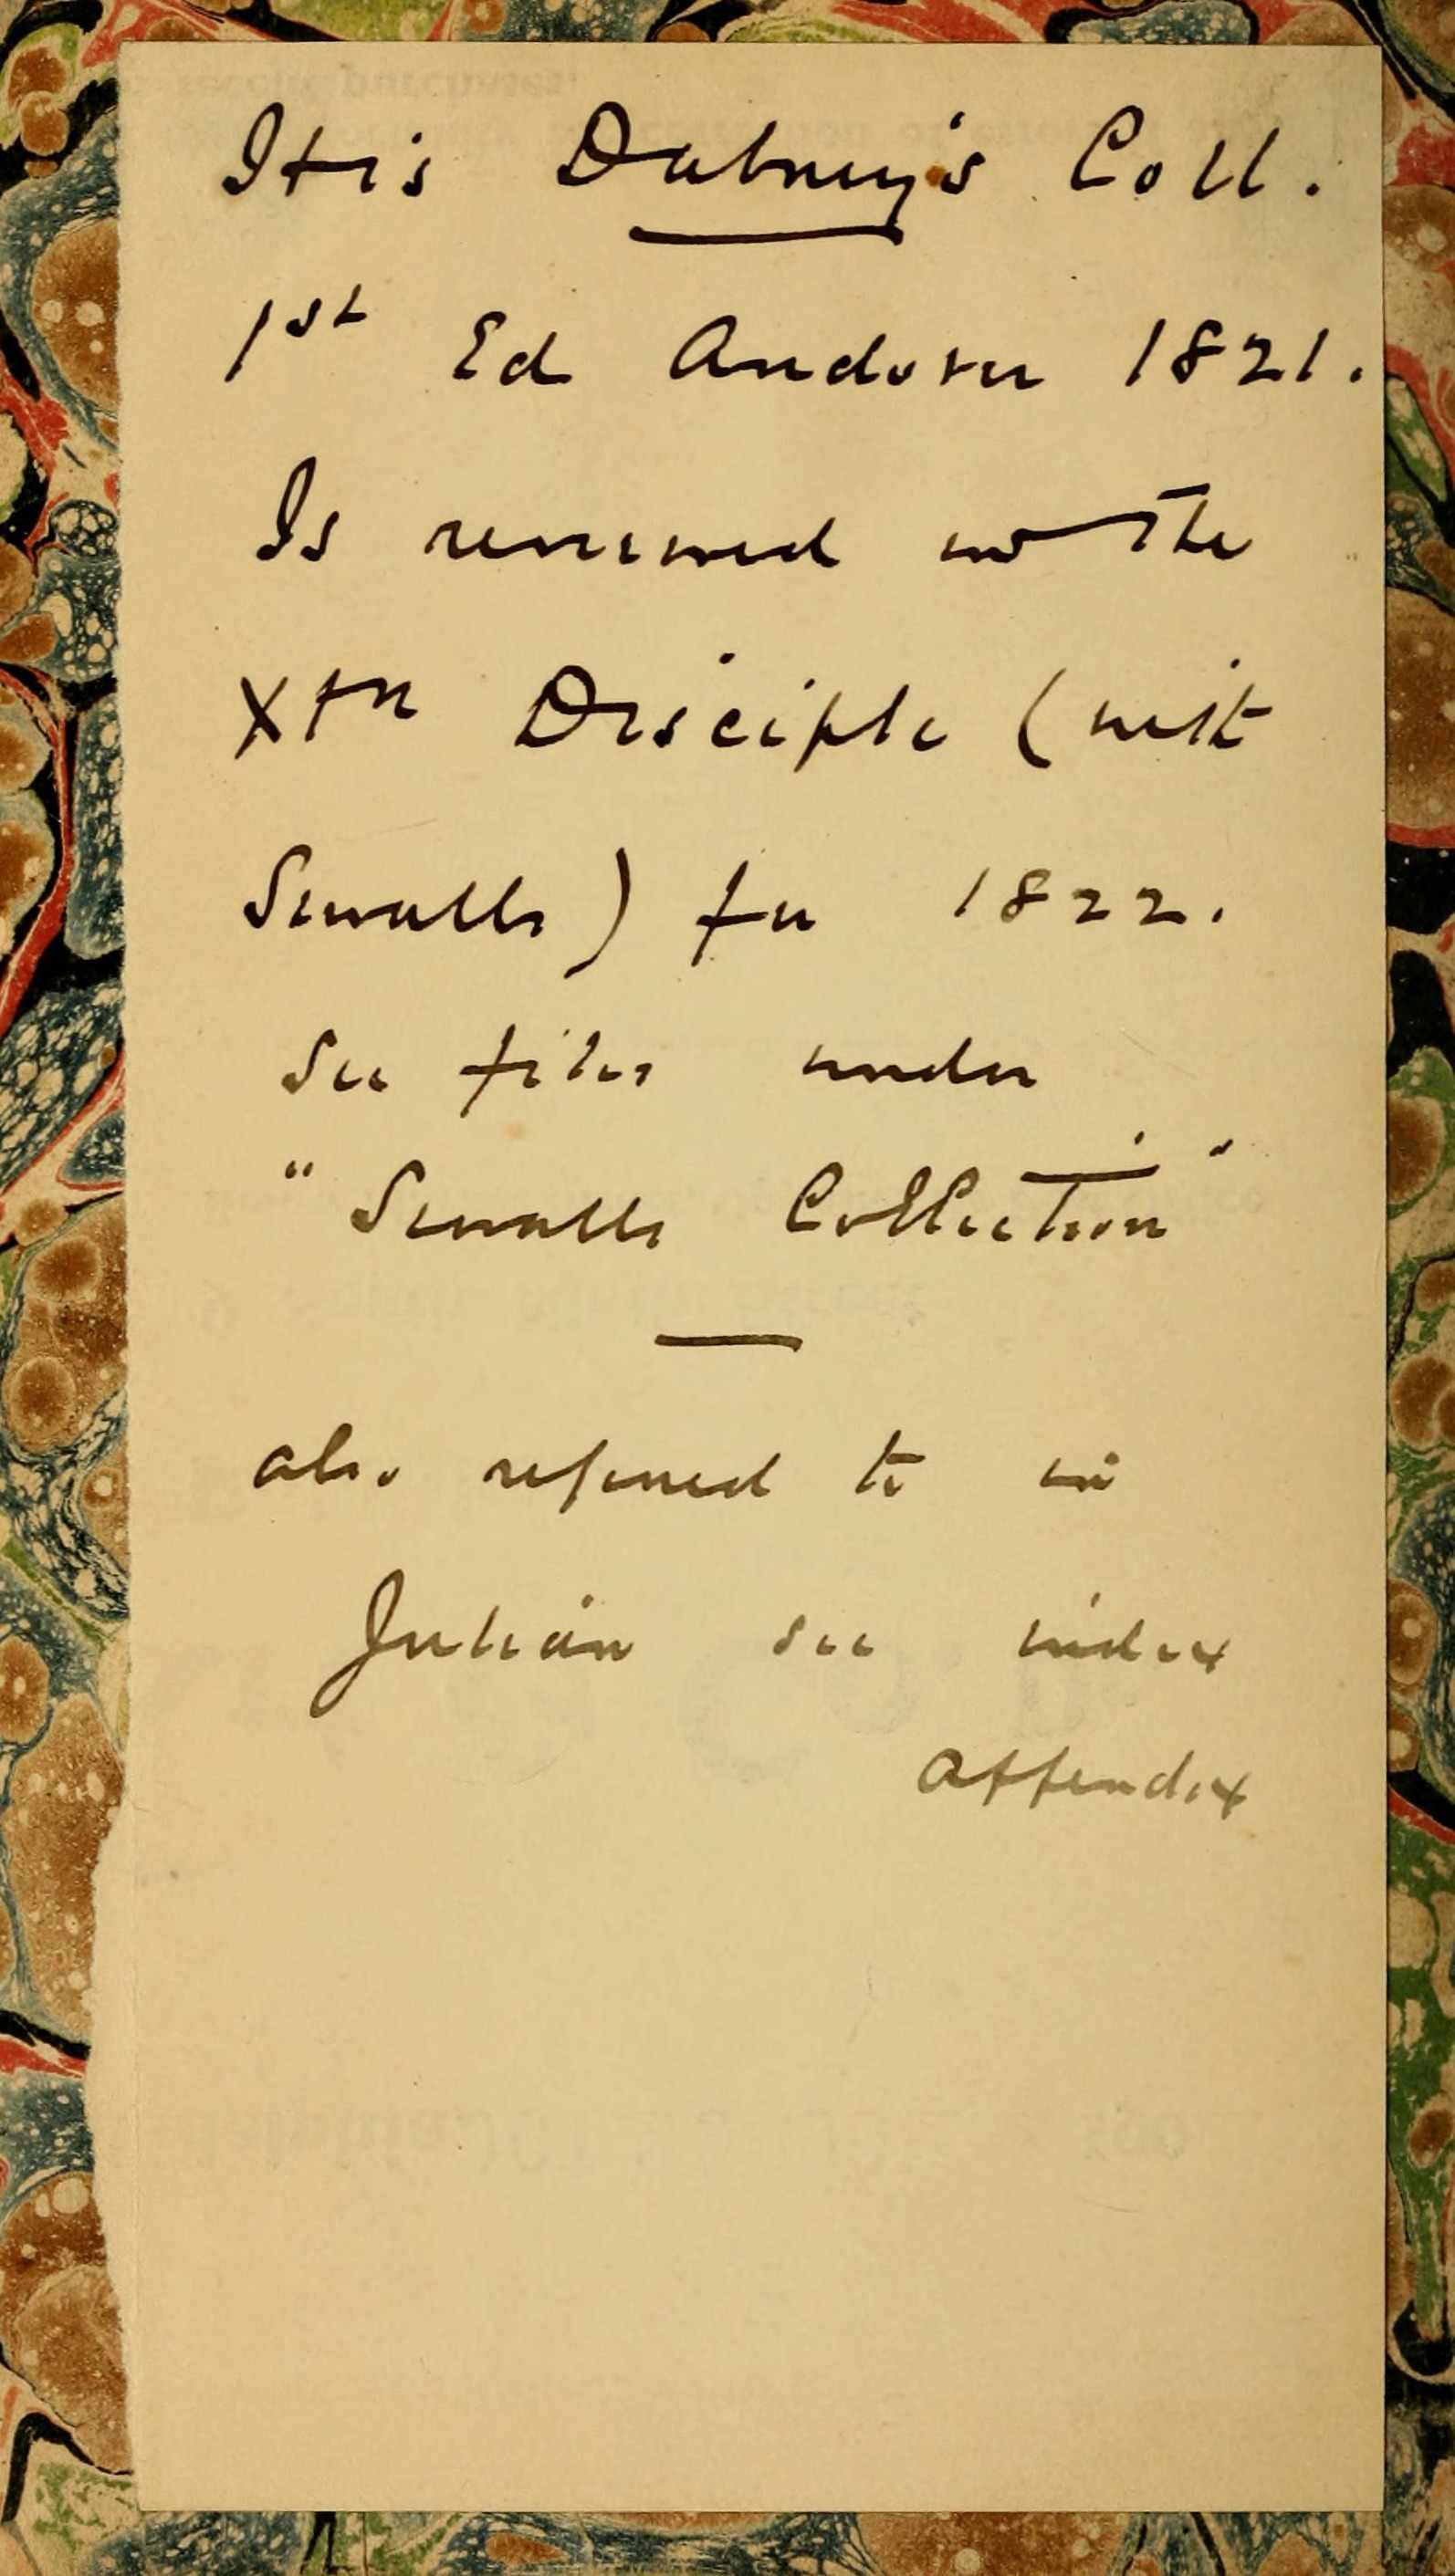 It is Dabney's Coll.
1st Ed Andover 1821.
Is reviewed in the
Xtn Disciple (with
Sewalls) for 1822.
See files under
"Sewalls Collection"
also referred to in
Julian see index
appendix